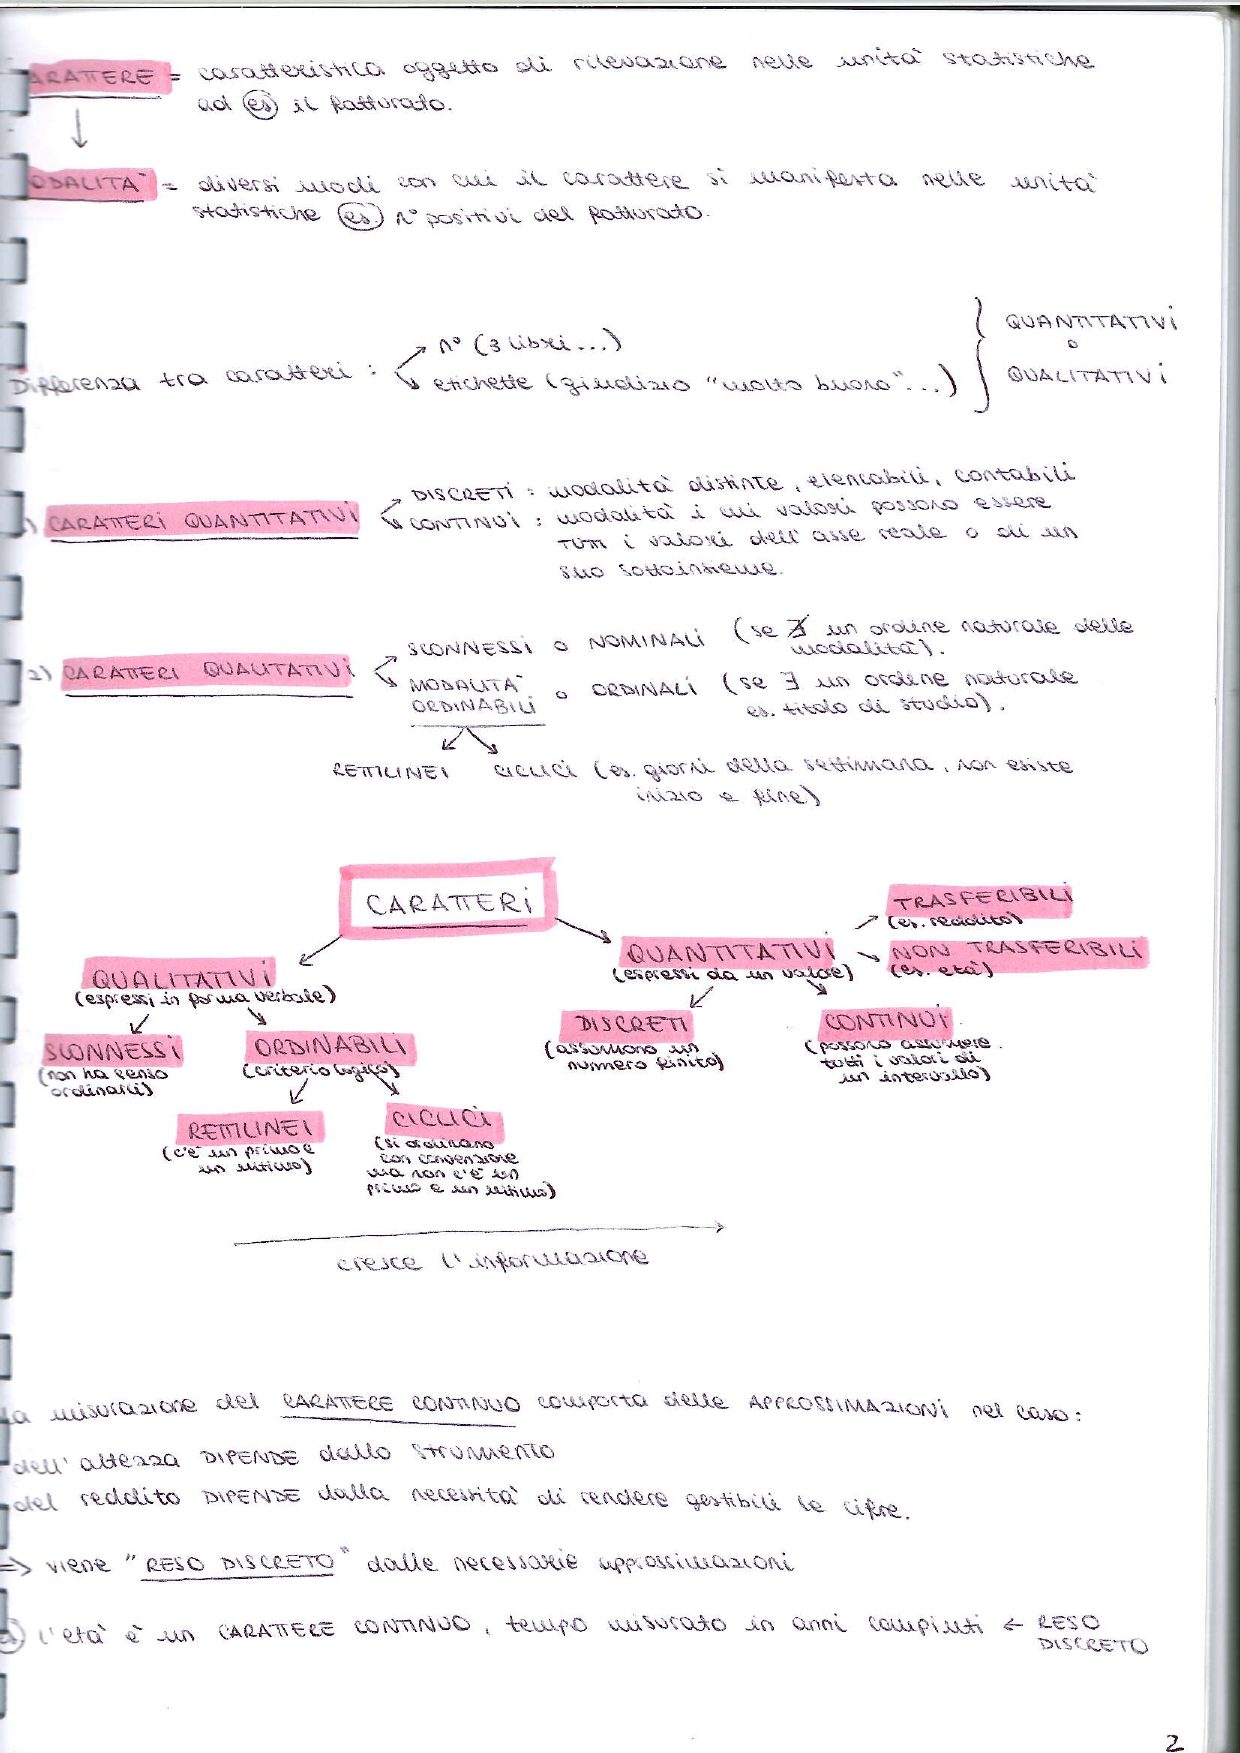 CARATTERE = caratteristica oggetto di rilevazione nelle unità statistiche
ad es il fatturato.
↓
MODALITA' = diversi modi con cui il carattere si manifesta nelle unità
statistiche es. n° positivi del fatturato.
Differenza tra caratteri :
→ n° (3 libri ...)
→ etichette (giudizio "molto buono"...)
QUANTITATIVI
o
QUALITATIVI
1) CARATTERI QUANTITATIVI
→ DISCRETI : modalità distinte, elencabili, contabili
→ CONTINUI : modalità i cui valori possono essere
TUTTI i valori dell'asse reale o di un
suo sottoinsieme.
2) CARATTERI QUALITATIVI
→ SCONNESSI o NOMINALI (se ∄ un ordine naturale delle
modalità).
→ MODALITA' ORDINABILI o ORDINALI (se ∃ un ordine naturale
es. titolo di studio).
RETTILINEI CICLICI (es. giorni della settimana, non esiste
inizio e fine)
CARATTERI
QUALITATIVI
(espressi in forma verbale)
SCONNESSI
(non ha senso
ordinarli)
ORDINABILI
(criterio logico)
RETTILINEI
(c'è un primo e
un ultimo)
CICLICI
(si ordinano
con convenzione
ma non c'è un
primo e un ultimo)
QUANTITATIVI
(espressi da un valore)
TRASFERIBILI
(es. reddito)
NON TRASFERIBILI
(es. età)
DISCRETI
(assumono un
numero finito)
CONTINUI
(possono assumere
tutti i valori di
un intervallo)
cresce l'informazione
La misurazione del CARATTERE CONTINUO comporta delle APPROSSIMAZIONI nel caso:
dell'altezza DIPENDE dallo strumento
del reddito DIPENDE dalla necessità di rendere gestibili le cifre.
=> viene "RESO DISCRETO" dalle necessarie approssimazioni
es) l'età è un CARATTERE CONTINUO, tempo misurato in anni compiuti ← RESO
DISCRETO
2